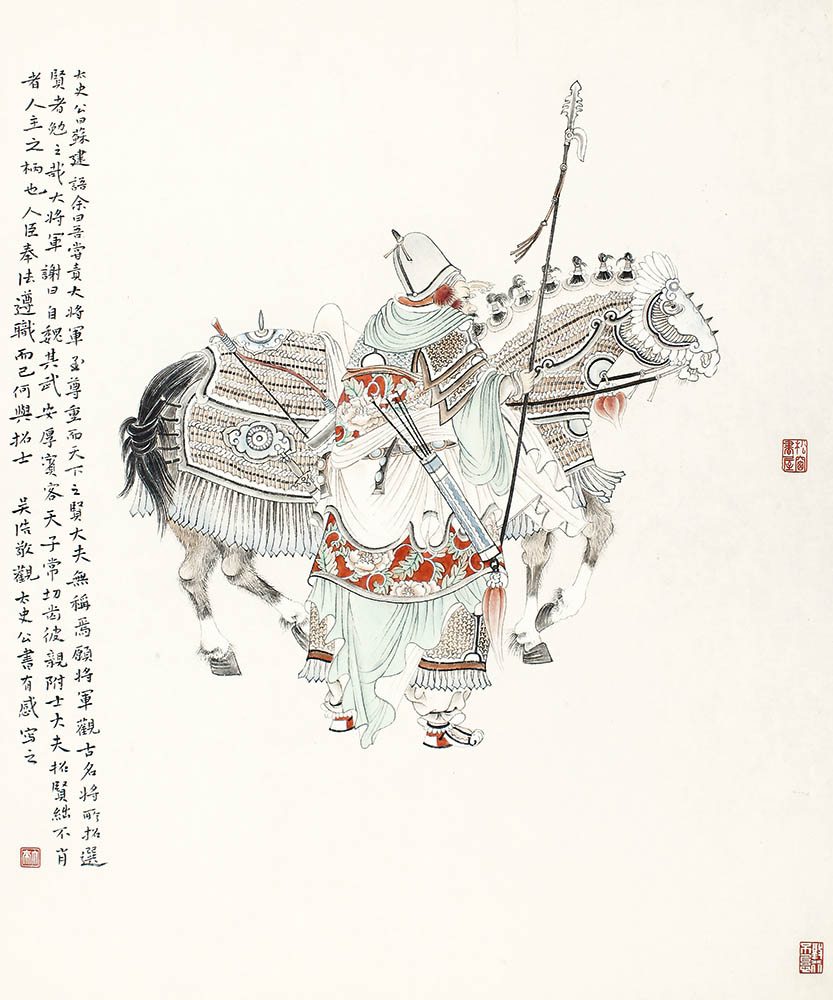 太史公曰蘇建語余曰吾嘗責大將軍至尊重而天下之賢大夫無稱焉願將軍觀古名將所招選
賢者勉之哉大將軍謝曰自魏其武安厚賓客天子常切齒彼親附士大夫招賢絀不肖
者人主之柄也人臣奉法遵職而已何與招士 吳浩敬觀太史公書有感寫之